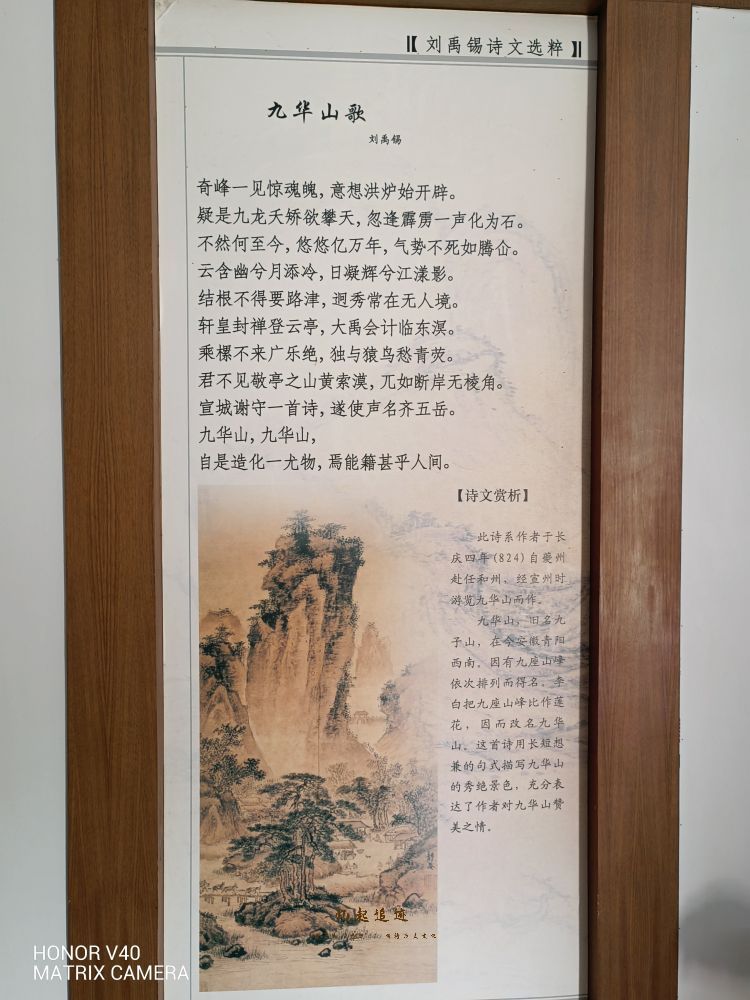 【刘禹锡诗文选粹】
九华山歌
刘禹锡
奇峰一见惊魂魄，意想洪炉始开辟。
疑是九龙夭矫欲攀天，忽逢霹雳一声化为石。
不然何至今，悠悠亿万年，气势不死如腾仚。
云含幽兮月添冷，日凝辉兮江漾影。
结根不得要路津，迥秀常在无人境。
轩皇封禅登云亭，大禹会计临东溟。
乘樏不来广乐绝，独与猿鸟愁青荧。
君不见敬亭之山黄索漠，兀如断岸无棱角。
宣城谢守一首诗，遂使声名齐五岳。
九华山，九华山，
自是造化一尤物，焉能籍甚乎人间。
【诗文赏析】
此诗系作者于长
庆四年(824)自夔州
赴任和州，经宣州时
游览九华山而作。
九华山，旧名九
子山，在今安徽青阳
西南。因有九座山峰
依次排列而得名。李
白把九座山峰比作莲
花，因而改名九华
山。这首诗用长短想
兼的句式描写九华山
的秀绝景色，充分表
达了作者对九华山赞
美之情。
追迹
HONOR V40
MATRIX CAMERA